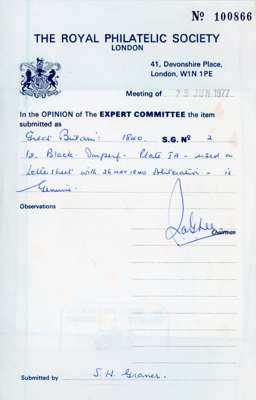 Nº 100866
THE ROYAL PHILATELIC SOCIETY
LONDON
41, Devonshire Place,
London, W1N 1PE
Meeting of 23 JUN 1977
In the OPINION of The EXPERT COMMITTEE the item
submitted as
Great Britain: 1840. S.G. Nº 2
1d. Black. Imperf. Plate 1A - used on
lettersheet with 26 MAY 1840 obliteration - is
Genuine.
Observations
Chairman
Submitted by S. H. Graner.